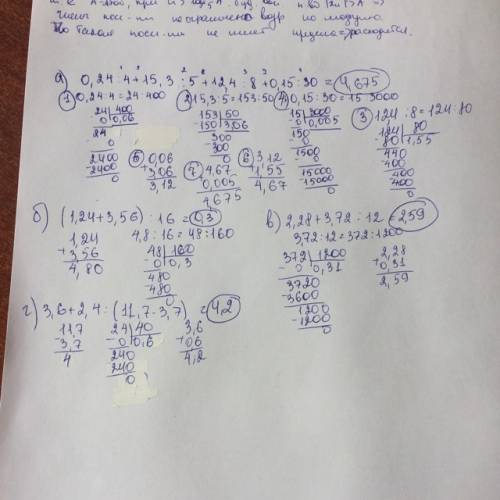 члены посл-ти неограничено возр по модулю.
посл-ти не имеет предела => расходится.
а) 0,24 : 4 + 15,3 : 5 + 12,4 : 8 + 0,15 : 30 = 4,675
① 0,24:4 = 24:400 ② 15,3:5 = 153:50 ④ 0,15:30 = 15:3000
③ 124 :8 = 124:80
24 | 400 153 | 50 15 | 3000 124 | 80
0 0,06 -150 3,06 0 0,005 -80 1,55
24 300 150 440
-0 -300 -0 -400
2400 0 1500 400
-2400 -0 -400
0 15000 0
-15000
0
⑤ 0,06 ⑦ 4,67 ⑥ 3,12
+3,06 0,005 +1,55
3,12 4,675 4,67
б) (1,24+3,56) : 16 = 0,3
1,24 4,8:16 = 48:160
+3,56 48 | 160
4,80 -0 0,3
480
-480
0
в) 2,28+3,72 : 12 = 2,59
3,72:12 = 372:1200
372 | 1200 2,28
-0 0,31 +0,31
3720 2,59
-3600
1200
-1200
0
г) 3,6+2,4 : (11,7-3,7) = 4,2
11,7 24 | 40 3,6
-3,7 -0 0,6 +0,6
4 240 4,2
240
0